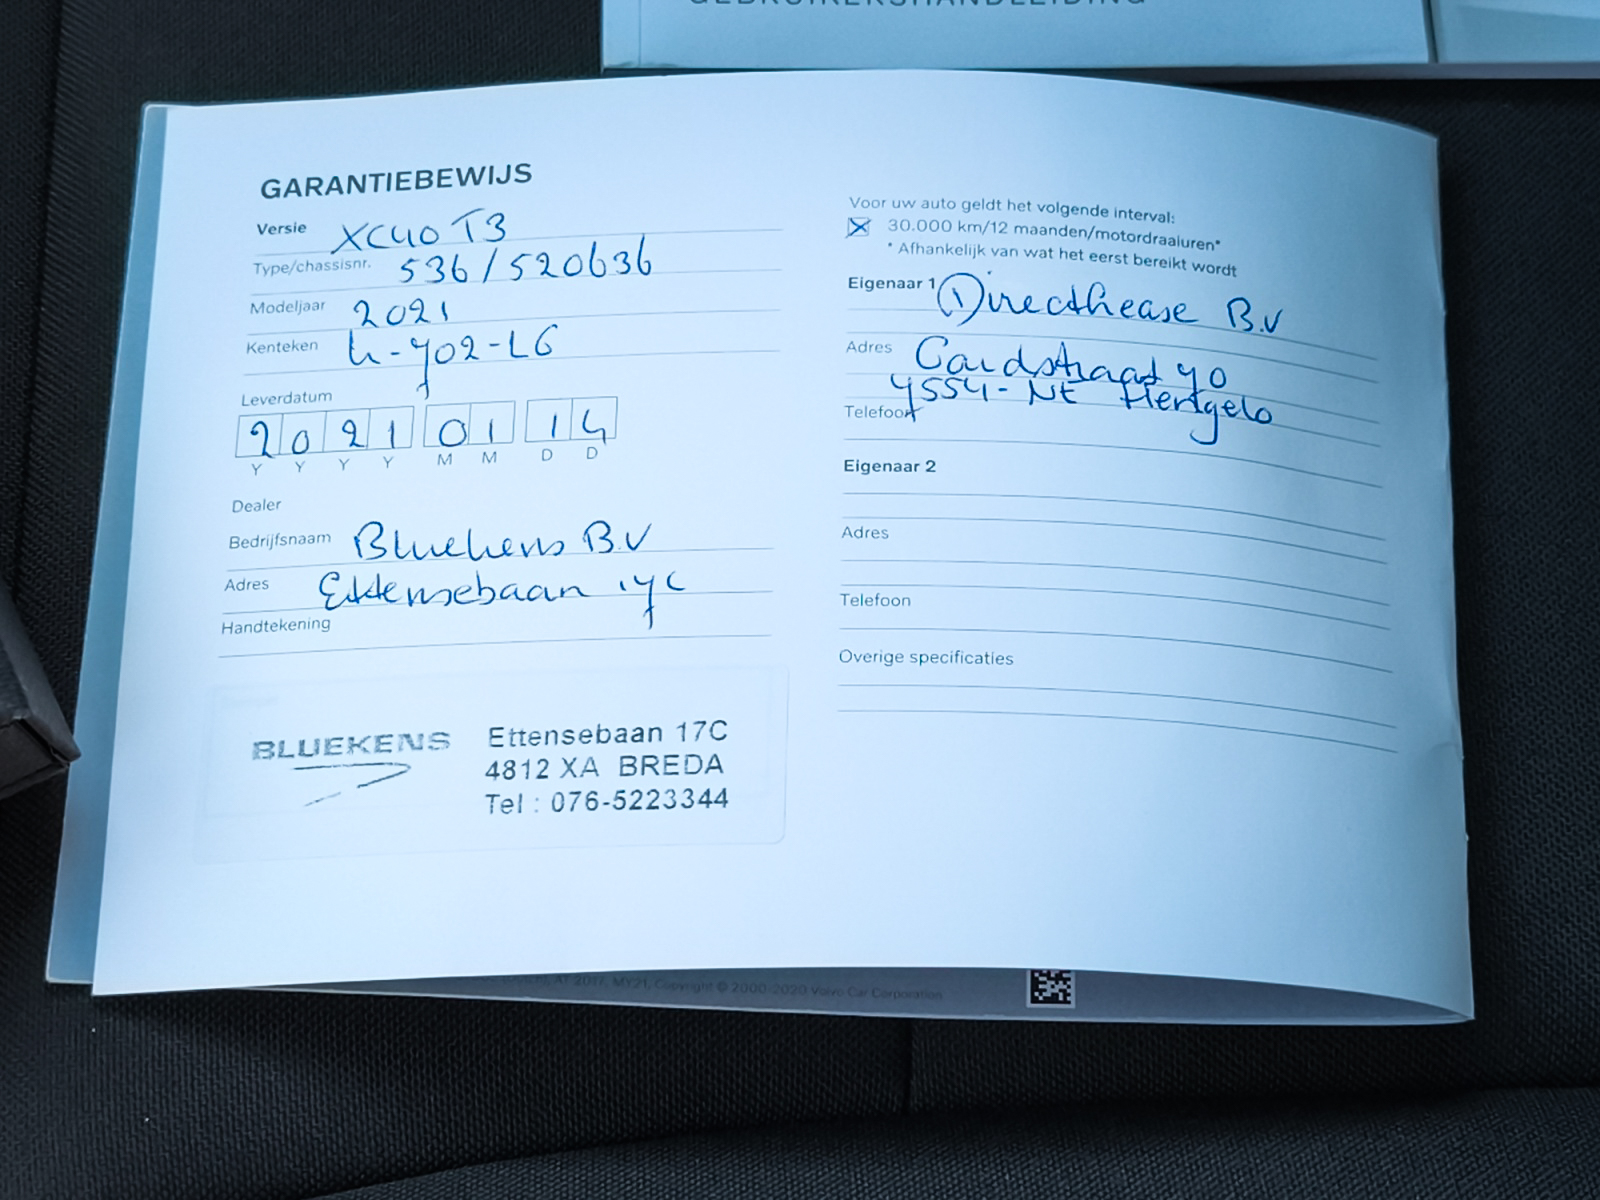 GEBRUIKERSHANDLEIDING
GARANTIEBEWIJS
Versie XC40 T3
Type/chassisnr. 536/520636
Modeljaar 2021
Kenteken K-702-LG
Leverdatum
2021 01 14
Y Y Y Y M M D D
Dealer
Bedrijfsnaam Bluekens B.V
Adres Ettensebaan 17C
Handtekening
BLUEKENS
Ettensebaan 17C
4812 XA BREDA
Tel : 076-5223344
Voor uw auto geldt het volgende interval:
30.000 km/12 maanden/motordraaiuren*
* Afhankelijk van wat het eerst bereikt wordt
Eigenaar 1 Directlease B.V
Adres 70
7554-
Telefoon
Eigenaar 2
Adres
Telefoon
Overige specificaties
AT 2017, MY21, Copyright © 2000-2020 Volvo Car Corporation